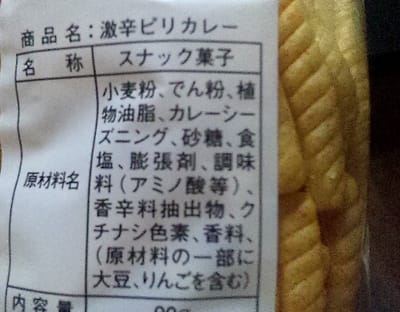 商品名:激辛ビリカレー
名称 スナック菓子
原材料名
小麦粉、でん粉、植
物油脂、カレーシー
ズニング、砂糖、食
塩、膨張剤、調味
料(アミノ酸等)、
香辛料抽出物、ク
チナシ色素、香料、
(原材料の一部に
大豆、りんごを含む)
内容量